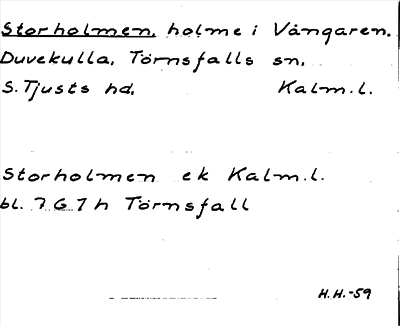 Storholmen, holme i Vångaren.
Duvekulla, Törnsfalls sn,
S. Tjusts hd, Kalm. l.
Storholmen ek Kalm. l.
bl. 7 G 7 h Törnsfall
H. H. -59